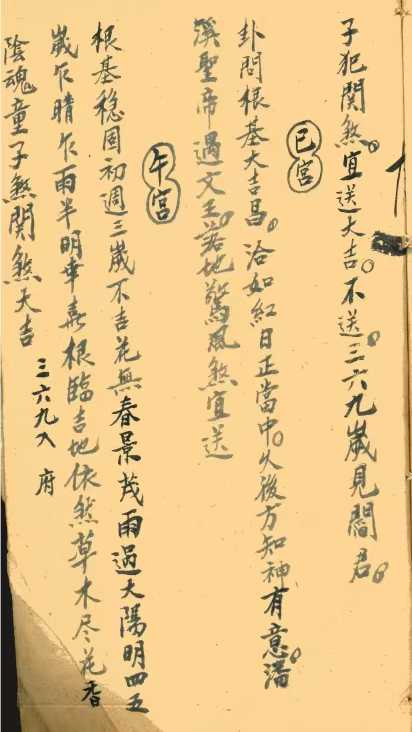 子犯関煞。宜送大吉。不送。三六九歲見閻君。
巳宮
卦問根基大吉昌。洽如紅日正當中。久後方知神有意。潘
溪聖帝遇文王。若地驚風煞宜送
午宮
根基稳固初週三歲不吉花無春景茂雨過太陽明四五
歲乍晴乍雨半明幸喜根臨吉地依然草木尽花香
陰魂童子煞関煞大吉
三六九入府